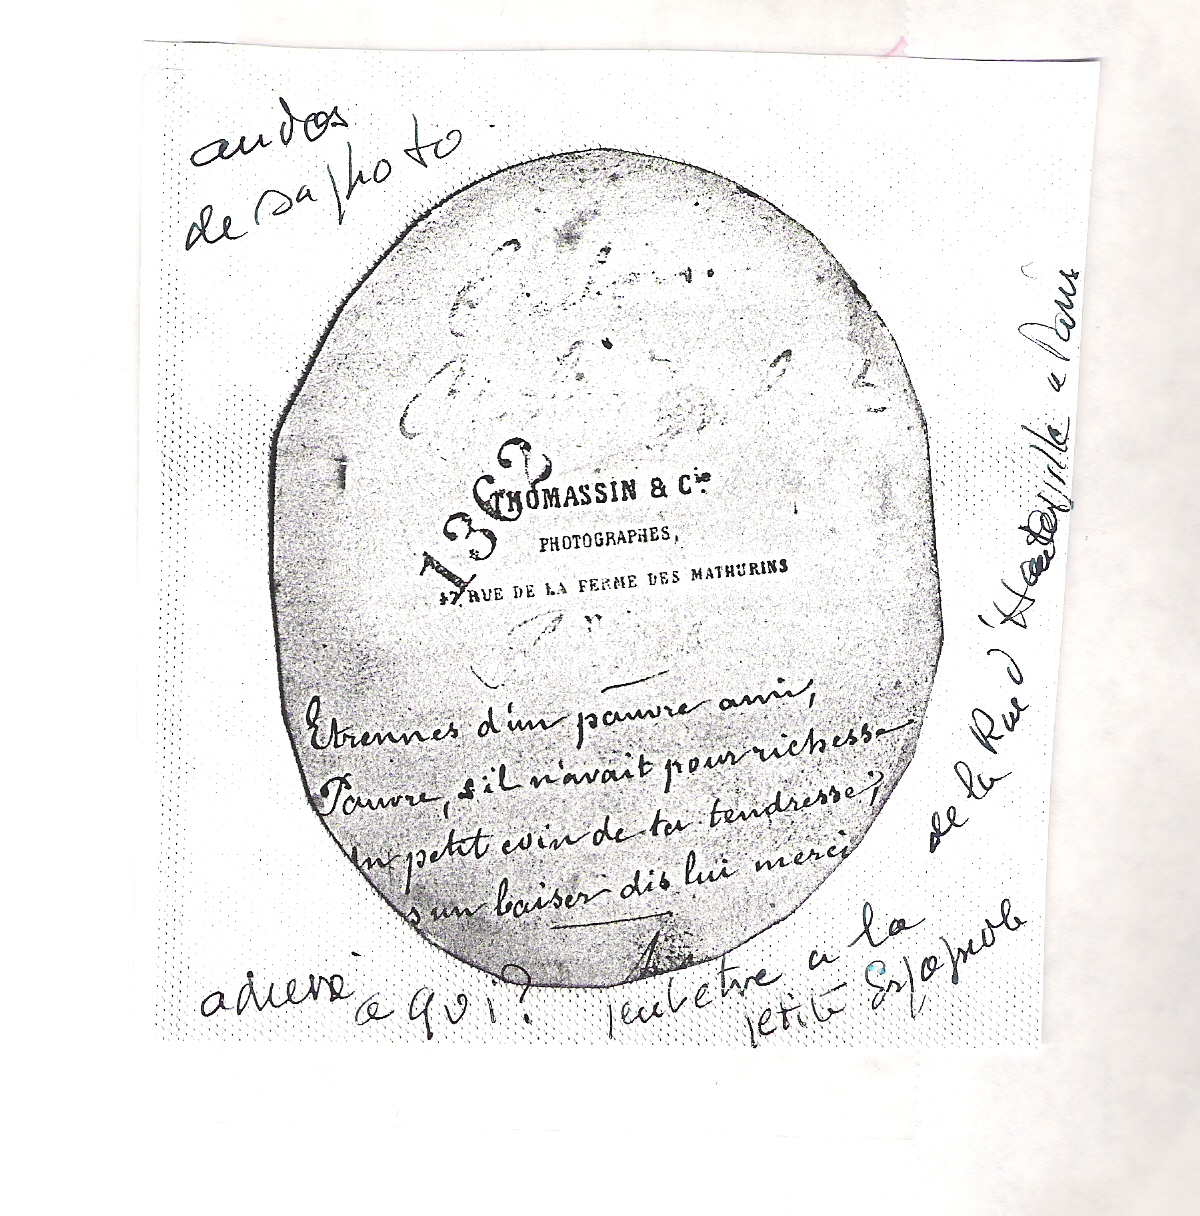 au dos
de sa photo
1362
THOMASSIN & Cie
PHOTOGRAPHES,
47, RUE DE LA FERME DES MATHURINS
Etrennes d'un pauvre ami,
Pauvre, s'il n'avait pour richesse
Un petit coin de ta tendresse;
s un baiser dis lui merci
à qui? peut etre a la
petite Espagnole
de la Rue d'Hauteville a Paris